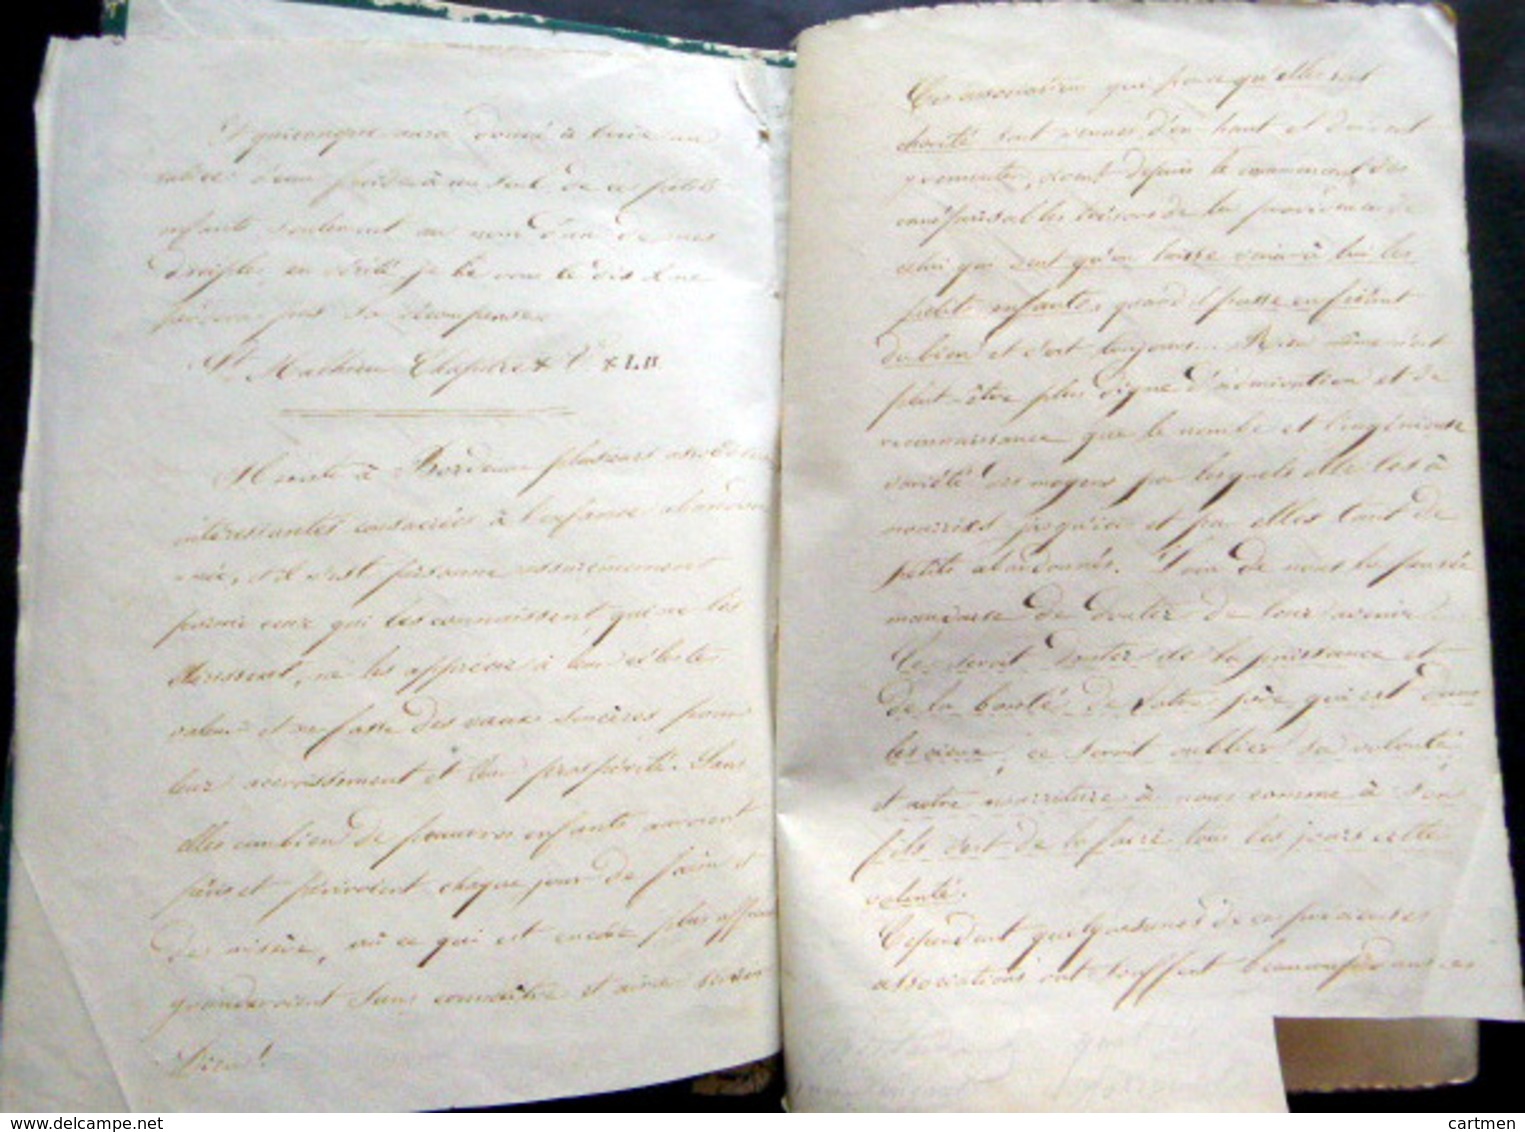 Et quiconque aura donné à boire un
calice d'eau froide à un seul de ces petits
enfants seulement au nom d'un de mes
disciples, en vérité je le vous le dis il ne
perdra pas sa récompense.
St Mathieu Chapitre X V. XLII
Il existe à Bordeaux plusieurs associations
intéressantes consacrées à l'enfance abandon
née, et il n'est personne assurément
parmi ceux qui les connaissent qui ne les
, ne les apprécie à leur céleste
valeur et ne fasse des vœux sincères pour
leur accroissement et leur prospérité. Sans
elles combien de pauvres enfants auroient
péri et périroient chaque jour de faim et
de misère, ou ce qui est encore plus affreux
grandiroient sans connoître et aimer
Dieu!
Ces associations qui parce qu'elles sont
charité sont venues d'en haut et doivent
, dont depuis le commencement des
inépuisables trésors de la providence de
celui qui veut qu'on laisse venir à lui les
petits enfants, quand il passe en faisant
du bien et c'est toujours... Rien même n'est
peut-être plus digne d'admiration et de
reconnaissance que le nombre et l'ingénieuse
variété des moyens par lesquels elle les a
nourries jusqu'ici et par elles tant de
petits abandonnés. Loin de nous la pensée
mauvaise de douter de leur avenir.
Ce seroit douter de la puissance et
de la bonté de Notre père qui est dans
les cieux, ce seroit oublier sa volonté,
et notre nourriture à nous comme à son
fils c'est de la faire tous les jours cette
volonté.
Cependant quelques unes de ces précieuses
associations ont souffert beaucoup dans ces
cartmen